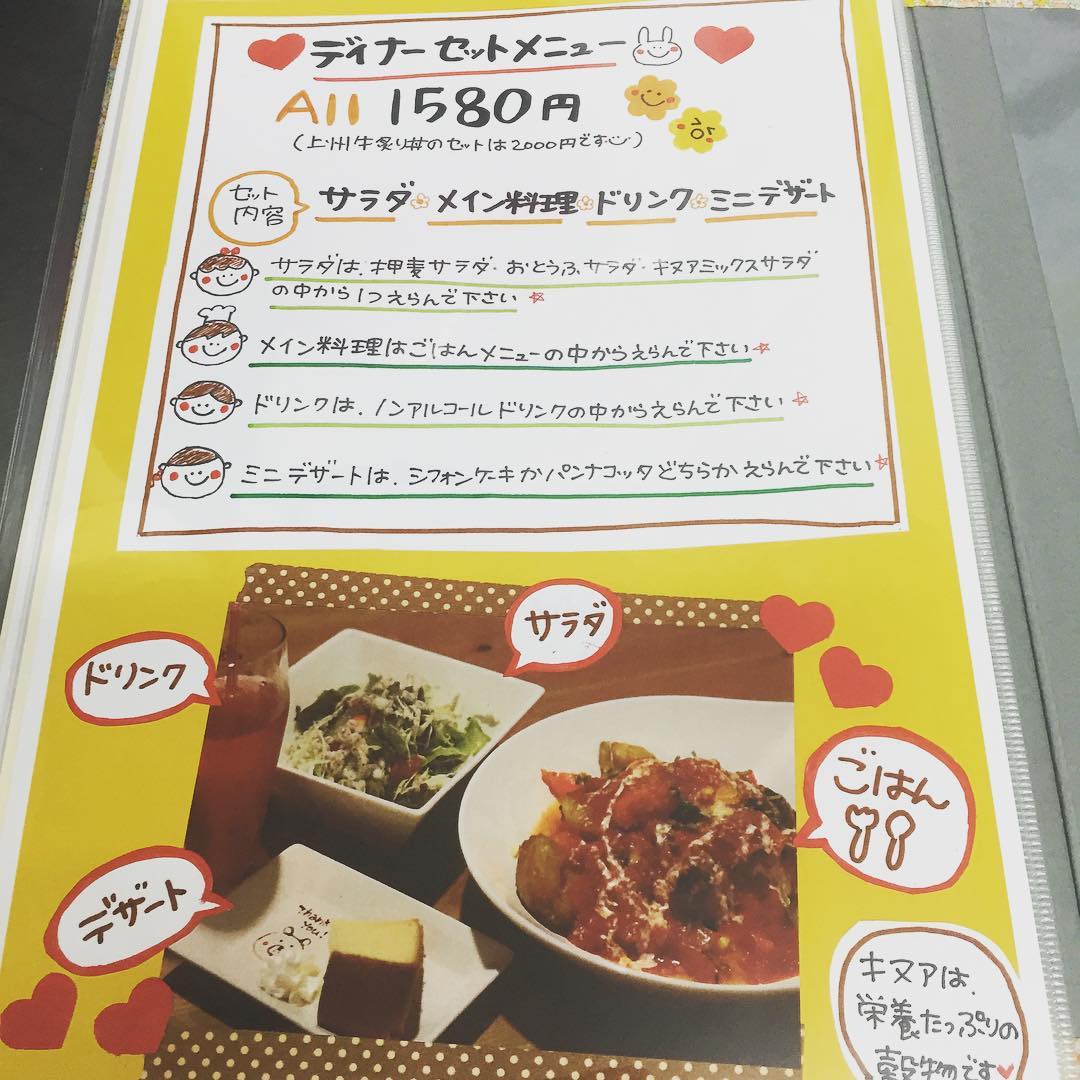 ディナーセットメニュー
All 1580円
(上州牛炙り丼のセットは2000円です)
セット
内容
サラダ メイン料理 ドリンク ミニデザート
サラダは、押麦サラダ・おとうふサラダ・キヌアミックスサラダ
の中から1つえらんで下さい
メイン料理はごはんメニューの中からえらんで下さい
ドリンクは、ノンアルコールドリンクの中からえらんで下さい
ミニデザートは、シフォンケーキかパンナコッタどちらかえらんで下さい
サラダ
ドリンク
ごはん
デザート
Thank
You!
キヌアは、
栄養たっぷりの
穀物です